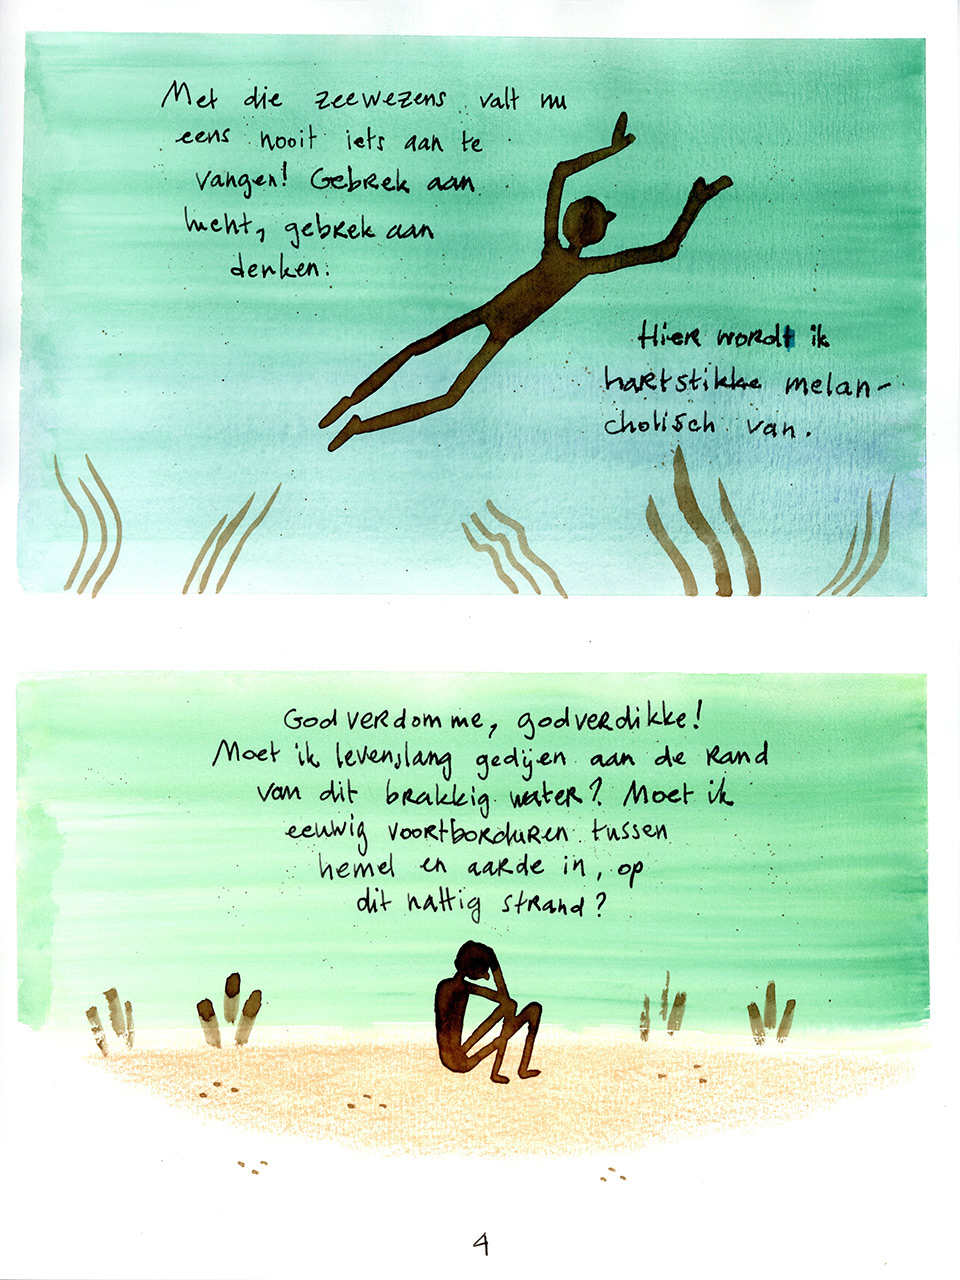 Met die zeewezens valt nu
eens nooit iets aan te
vangen! Gebrek aan
lucht, gebrek aan
denken.
Hier wordt ik
hartstikke melan-
cholisch van.
Godverdomme, godverdikke!
Moet ik levenslang gedijen aan de rand
van dit brakkig water? Moet ik
eeuwig voortborduren tussen
hemel en aarde in, op
dit nattig strand?
4